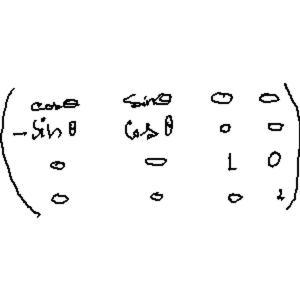 cosθ sinθ 0 0
-sinθ cosθ 0 0
0 0 1 0
0 0 0 1